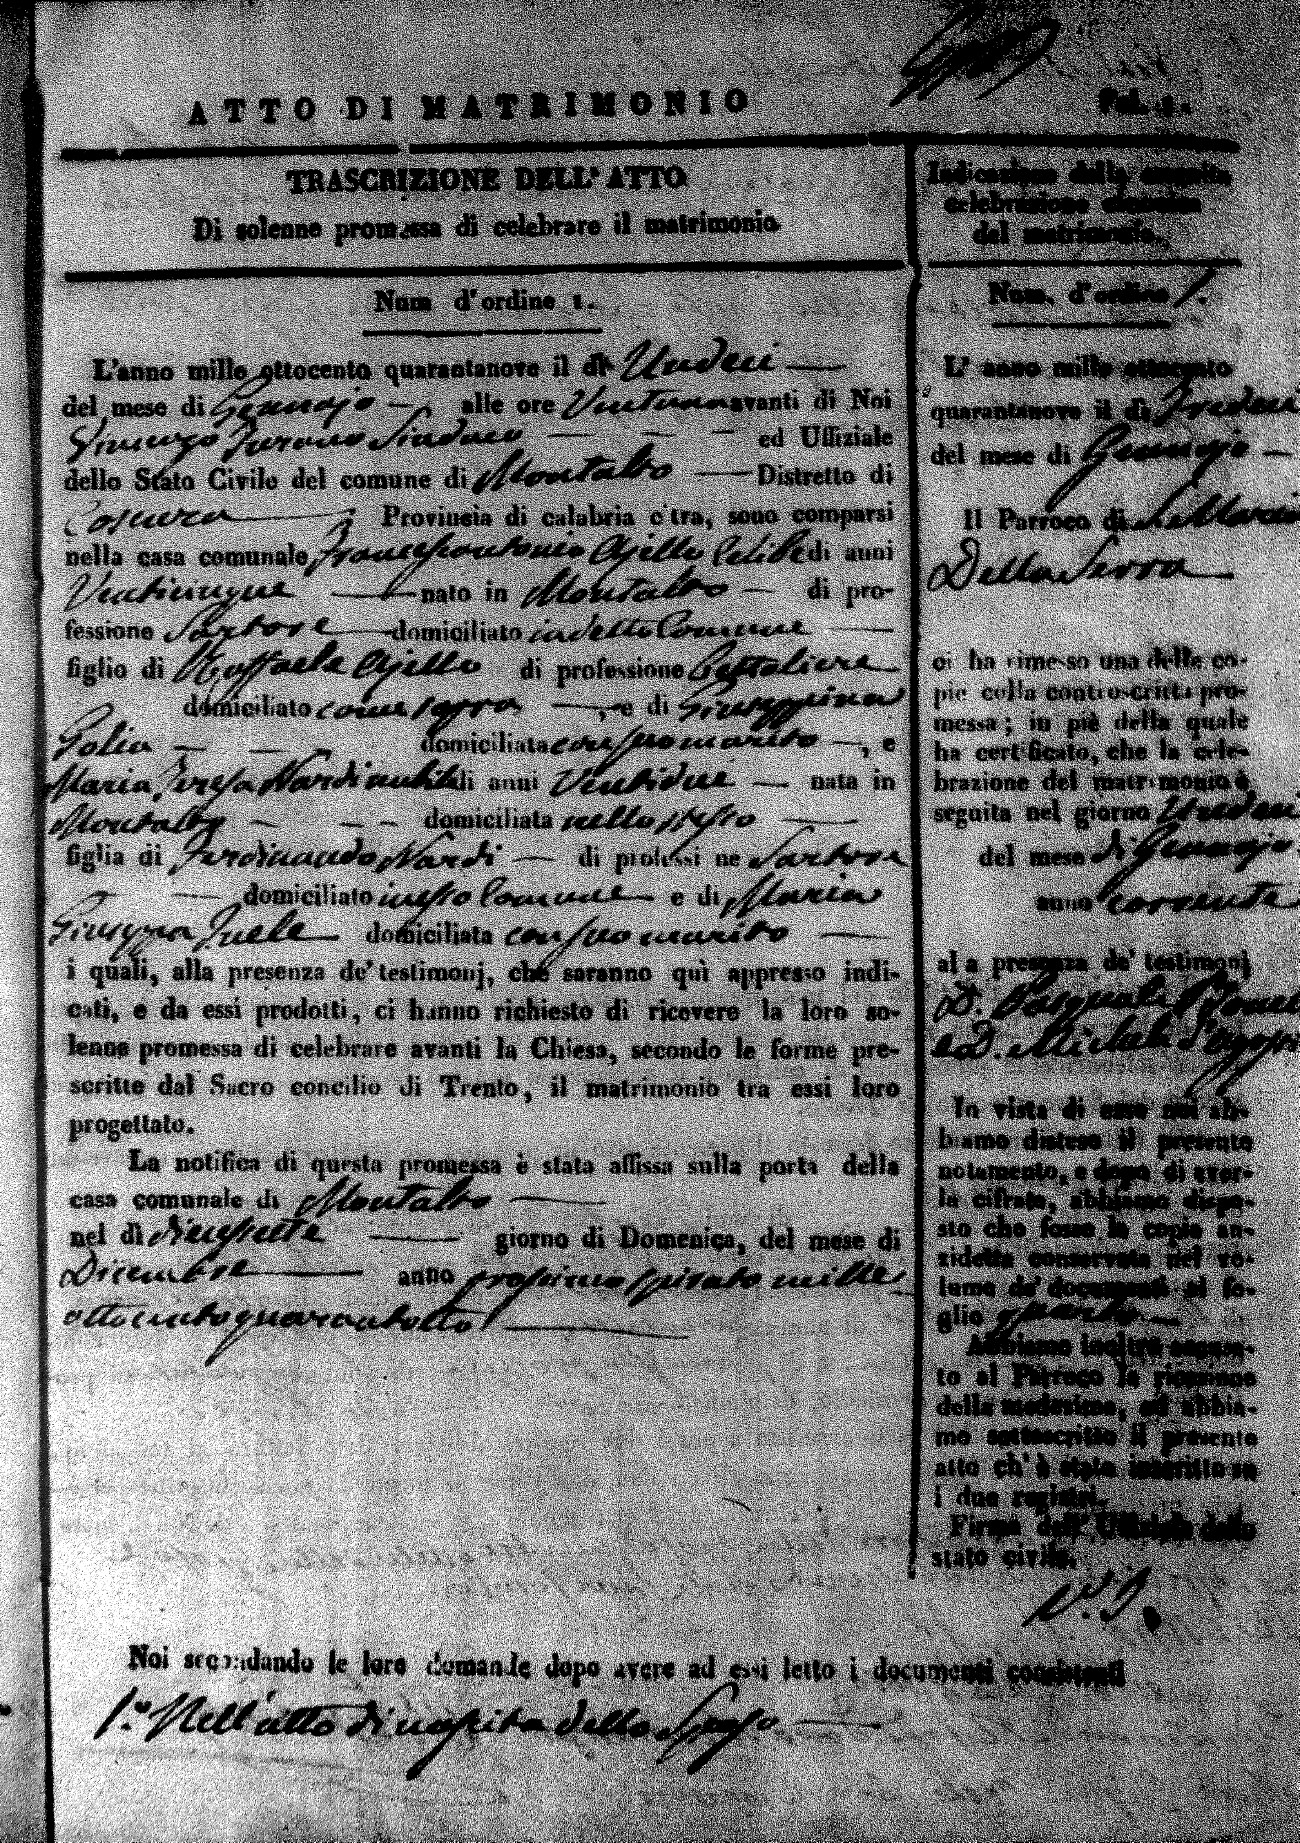 ATTO DI MATRIMONIO
Pol. 1.
TRASCRIZIONE DELL' ATTO
Di solenne promessa di celebrare il matrimonio
Num d'ordine 1.
L'anno mille ottocento quarantanove il dì Undeci
del mese di Gennajo alle ore Ventuna avanti di Noi
Sindaco ed Uffiziale
dello Stato Civile del comune di Montalto Distretto di
Cosenza Provincia di calabria citra, sono comparsi
nella casa comunale Francescantonio Ajello Celibe di anni
Venticinque nato in Montalto di pro-
fessione Sartore domiciliato in detto Comune
figlio di Raffaele Ajello di professione Bottaliere
domiciliato come sopra, e di Giuseppina
Golia domiciliata con suo marito, e
Maria Teresa Nardi nubile di anni Ventidue nata in
Montalto domiciliata nello stesso
figlia di Ferdinando Nardi di professi ne Sartore
domiciliato in esso Comune e di Maria
Giuseppa Iuele domiciliata con suo marito
i quali, alla presenza de' testimonj, che saranno quì appresso indi-
cati, e da essi prodotti, ci hanno richiesto di ricevere la loro so-
lenne promessa di celebrare avanti la Chiesa, secondo le forme pre-
scritte dal Sacro concilio di Trento, il matrimonio tra essi loro
progettato.
La notifica di questa promessa è stata affissa sulla porta della
casa comunale di Montalto
nel dì diecissette giorno di Domenica, del mese di
Dicembre anno prossimo spirato mille
ottocento quarantotto
Indicazione della seguita
celebrazione
del matrimonio.
Num. d'ordine 1.
L' anno mille ottocento
quarantanove il dì Tredeci
del mese di Gennajo
Il Parroco di S. Maria
Della Serra
ci ha rimesso una delle co-
pie colla controscritta pro-
messa; in piè della quale
ha certificato, che la cele-
brazione del matrimonio è
seguita nel giorno Tredeci
del mese di Gennajo
anno corrente
al a presenza de' testimonj
D. Pasquale
e D. Michele
In vista di esso noi ab-
biamo disteso il presente
notamento, e dopo di aver-
la cifrata, abbiamo dispo-
sto che fosse la copia an-
zidetta conservata nel vo-
lume de' documenti al fo-
glio quarto
Abbiamo inoltre accusa-
to al Parroco la ricezione
della medesima, ed abbia-
mo sottoscritto il presente
atto ch' è stato inscritto su
i due registri.
Firma dell' Uffiziale dello
stato civile.
Noi secondando le loro domande dopo avere ad essi letto i documenti consistenti
1.° Nell'atto di nascita dello Sposo